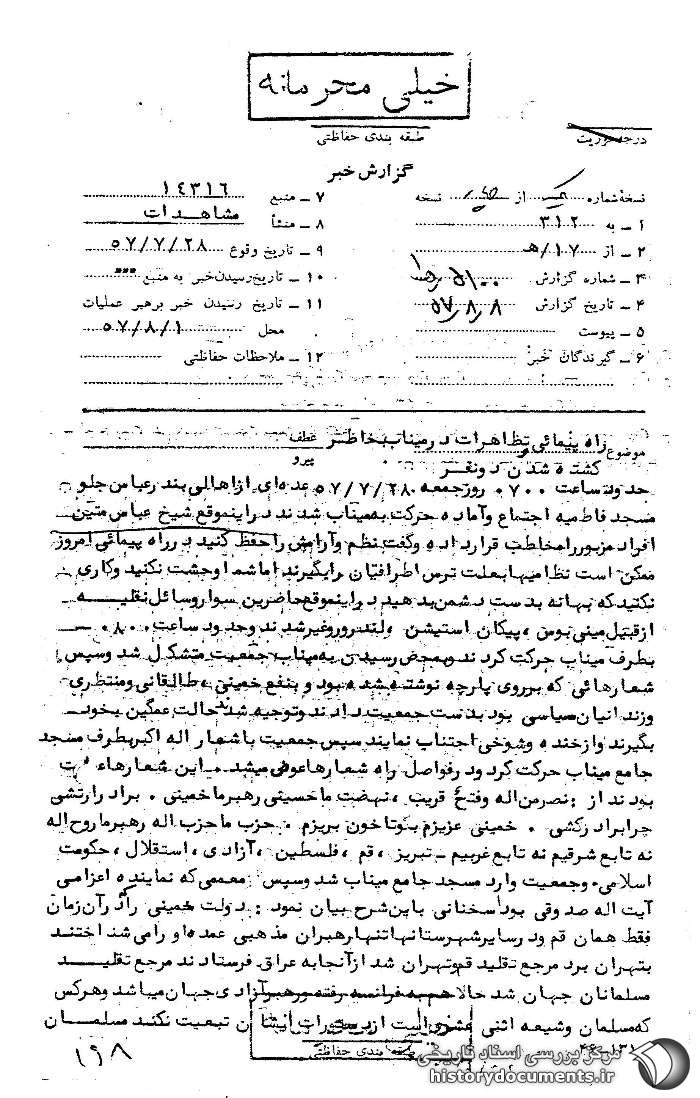 خیلی محرمانه
طبقه بندی حفاظتی
درجه فوریت
گزارش خبر
نسخه شماره یک از نسخه
۱ ـ به ۳۱۲
۲ ـ از ۱۷ / ه‍
۳ ـ شماره گزارش
۴ ـ تاریخ گزارش ۵۷/۸/۸
۵ ـ پیوست
۶ ـ گیرندگان خبر
۷ ـ منبع ۱۴۳۱۶
۸ ـ منشأ مشاهدات
۹ ـ تاریخ وقوع ۵۷/۷/۲۸
۱۰ ـ تاریخ رسیدن خبر به منبع
۱۱ ـ تاریخ رسیدن خبر برهبر عملیات
محل ۵۷/۸/۱
۱۲ ـ ملاحظات حفاظتی
موضوع راه پیمائی و تظاهرات در میناب بخاطر عطف
کشته شدن دونفر پیرو
حدود ساعت ۰۷۰۰ روز جمعه ۵۷/۷/۲۸ عده‌ای از اهالی بندرعباس جلو
مسجد فاطمیه اجتماع وآماده حرکت به میناب شدند دراینموقع شیخ عباس متین
افراد مزبور را مخاطب قرار داده وگفت نظم وآرامش را حفظ کنید در راه پیمائی امروز
ممکن است نظامیها بعلت ترس اطرافیان را بگیرند اما شما وحشت نکنید وکاری
نکنید که بهانه بدست دشمن بدهید دراینموقع حاضرین سوار وسائل نقلیه
ازقبیل مینی بوس ، پیکان استیشن ، لندرور وغیر شدند وحدود ساعت ۰۸۰۰
بطرف میناب حرکت کردند وبمحض رسیدن به میناب جمعیت متشکل شد وسپس
شعارهائی که برروی پارچه نوشته شده بود و بنفع خمینی ، طالقانی ومنتظری
وزندانیان سیاسی بود بدست جمعیت دادند وتوجیه شد حالت غمگین بخود
بگیرند وازخنده وشوخی اجتناب نمایند سپس جمعیت با شعار اله اکبر بطرف مسجد
جامع میناب حرکت کرد ودرفواصل راه شعارها عوض میشد . این شعارها
بودند از : نصرمن اله وفتح قریب ، نهضت ما حسینی رهبر ما خمینی . برادر ارتشی
چرا برادر کشی . خمینی عزیزم بگوتاخون بریزم . حزب ما حزب اله رهبر ما روح اله
نه تابع شرقیم نه تابع غربیم ـ تبریز ، قم ، فلسطین ، آزادی ، استقلال ، حکومت
اسلامی وجمعیت وارد مسجد جامع میناب شد وسپس معممی که نماینده اعزامی
آیت اله صدوقی بود سخنانی باین شرح بیان نمود : دولت خمینی را در آن زمان
فقط همان قم ودر سایر شهرستانها تنها رهبران مذهبی عمده او را می شناختند
بتهران برد مرجع تقلید قم وتهران شد ازآنجا به عراق فرستادند مرجع تقلید
مسلمانان جهان شد حالا هم به فرانسه رفته ورهبر آزادی جهان میباشد وهرکس
که مسلمان وشیعه اثنی عشری است از دستورات ایشان تبعیت نکند مسلمان
طبقه بندی حفاظتی
۱۹۸
مرکز بررسی اسناد تاریخی
historydocuments.ir